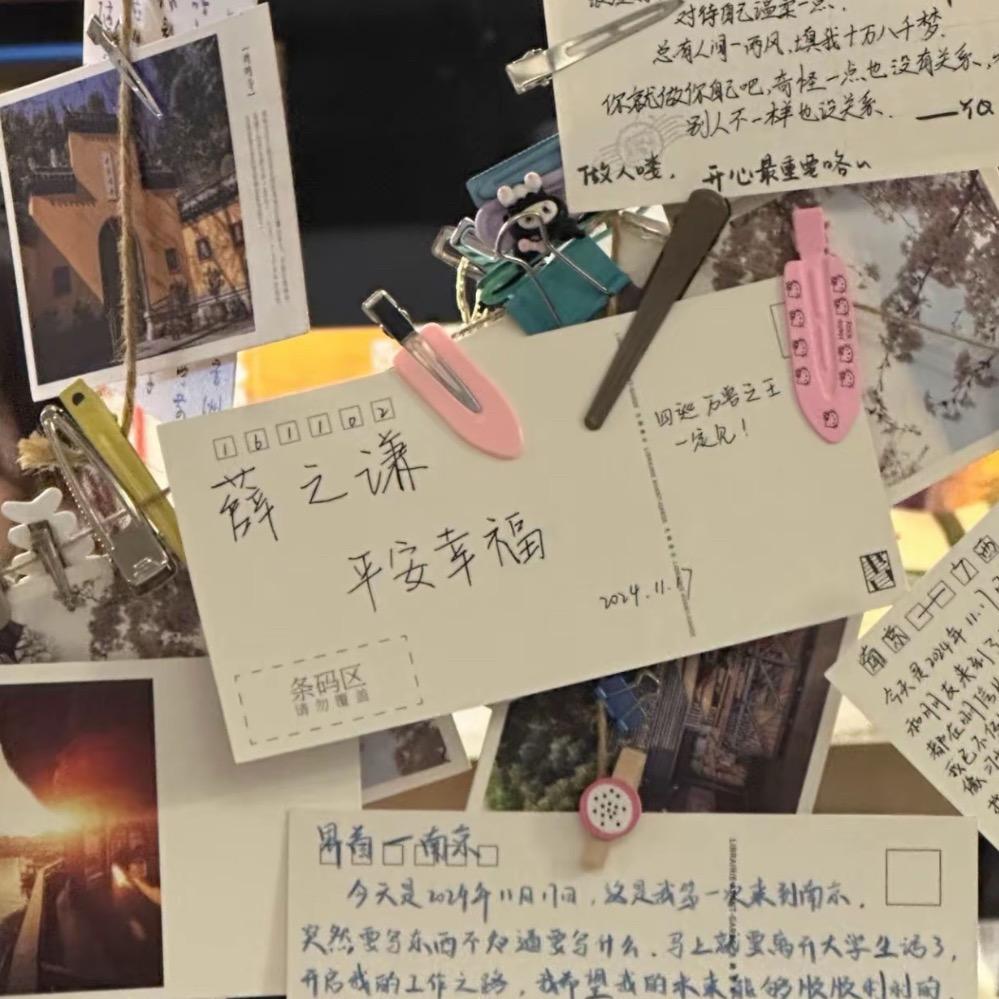 对待自己温柔一点.
总有人间一两风,填我十万八千梦.
你就做你自己吧,奇怪一点也没有关系,
别人不一样也没关系. ——YQ
做人喽, 开心最重要咯~
161102
薛之谦
平安幸福
回巡 万兽之王
一定见!
2024.11.17
条码区
请勿覆盖
今天是2024年11.17
和朋友来到了
都在
今天是2024年11月17日,这是我第一次来到南京.
突然要写东西不知道要写什么.马上就要离开大学生活了,
开启我的工作之路,我希望我的未来能够顺顺利利的